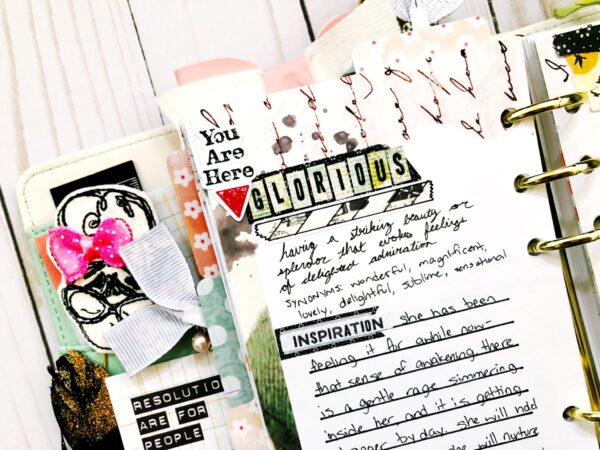 You
Are
Here
GLORIOUS
having a striking beauty or
splendor that evokes feelings
of delighted admiration
synonyms: wonderful, magnificent,
lovely, delightful, sublime, sensational
INSPIRATION she has been
feeling it for awhile now
that sense of awakening there
is a gentle rage simmering
inside her, and it is getting
by day. she will hold
she will nurture
RESOLUTIO
ARE FOR
PEOPLE